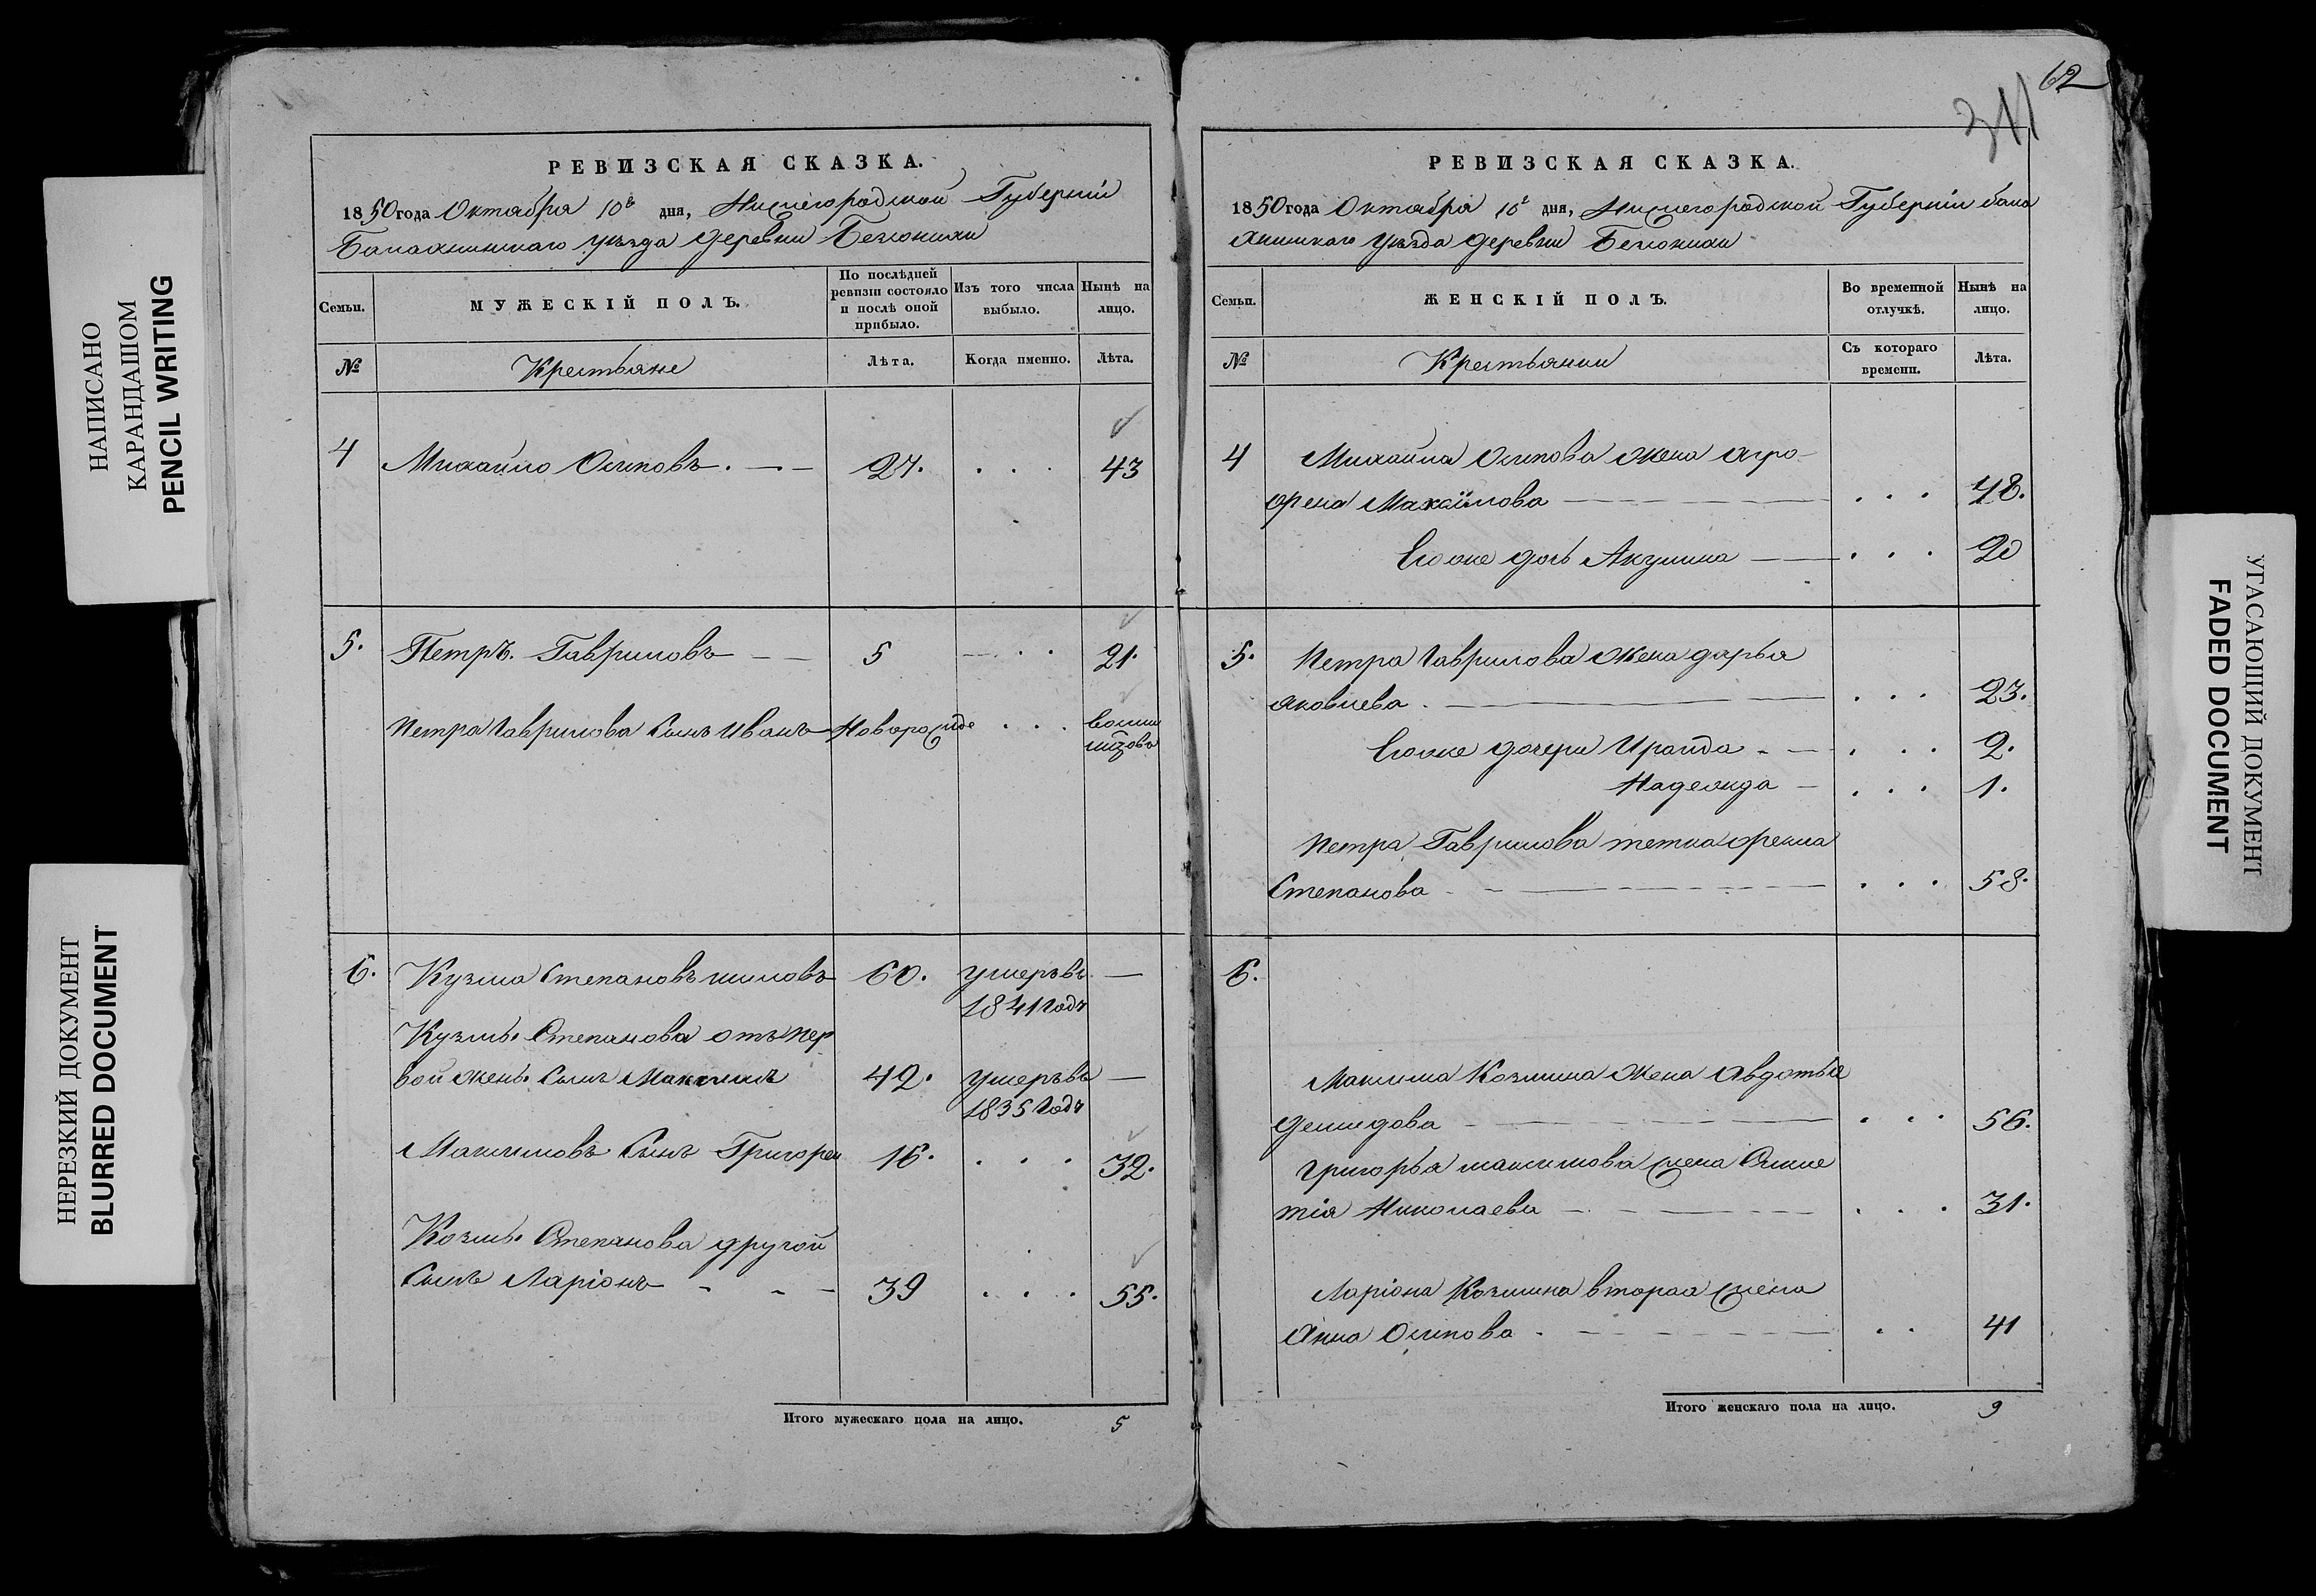 НАПИСАНО
КАРАНДАШОМ
PENCIL WRITING
НЕРЕЗКИЙ ДОКУМЕНТ
BLURRED DOCUMENT
РЕВИЗСКАЯ СКАЗКА.
1850 года Октября 10 дня, Нижегородской Губернiи
Балахнинскаго уѣзда деревни
Семьи.
МУЖЕСКІЙ ПОЛЪ.
По послѣдней ревизіи состояло и послѣ оной прибыло.
Изъ того числа выбыло.
Нынѣ на лицо.
№
Крестьяне
Лѣта.
Когда именно.
Лѣта.
4 Михайло Осиповъ 27. . . . 43
5. Петръ Гавриловъ 5 . . 21.
Петра Гаврилова сынъ Иванъ Новорожде . . .
6. Кузма Степановъ 60. умеръ въ —
1841 годѣ
Кузмы Степанова отъ пер
вой жены сынъ Максимъ 42. умеръ въ —
1835 годѣ
Максимовъ сынъ Григорей 16. . . . 32.
Козмы Степанова другой
сынъ Ларіонъ 39 . . . 55.
Итого мужескаго пола на лицо. 5
62
311
РЕВИЗСКАЯ СКАЗКА.
1850 года Октября 10 дня, Нижегородской Губерніи Бала
хнинскаго уѣзда деревни
Семьи.
ЖЕНСКІЙ ПОЛЪ.
Во временной отлучкѣ.
Нынѣ на лицо.
№
Крестьянки
Съ котораго времени.
Лѣта.
4 Михайла Осипова жена Агро
фена Максимова . . . 48.
Его же дочь Акулина . . . 20
5. Петра Гаврилова жена дарья
яковлева . . . 23.
Его же дочери Ираида . . . 2.
Надежда . . . 1.
Петра Гаврилова тетка фекла
Степанова . . . 58.
6.
Максима Козмина жена Авдотья
Демидова . . . 56.
Григорья максимова жена
Николаева . . . 31.
Ларіона Козмина вторая жена
Анна Осипова . . 41
Итого женскаго пола на лицо. 9
УГАСАЮЩИЙ ДОКУМЕНТ
FADED DOCUMENT